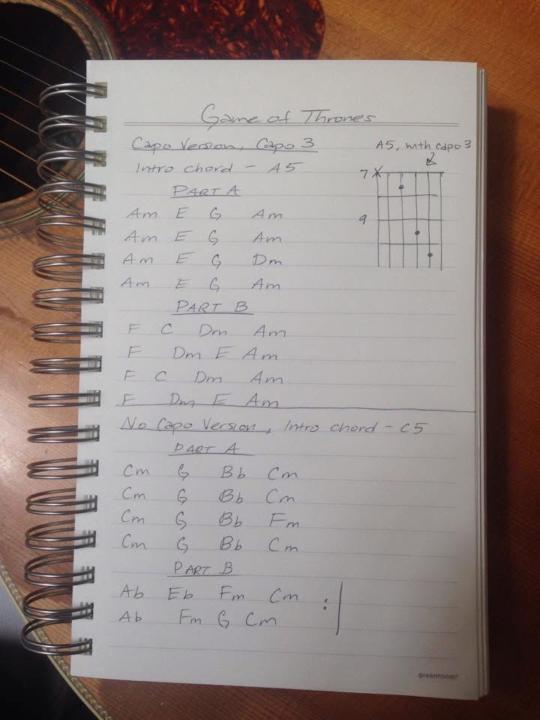 Game of Thrones
Capo Version, Capo 3
A5, with capo 3
Intro chord - A5
7 X
9
PART A
Am E G Am
Am E G Am
Am E G Dm
Am E G Am
PART B
F C Dm Am
F Dm E Am
F C Dm Am
F Dm E Am
No Capo Version, Intro chord - C5
PART A
Cm G Bb Cm
Cm G Bb Cm
Cm G Bb Fm
Cm G Bb Cm
PART B
Ab Eb Fm Cm
Ab Fm G Cm